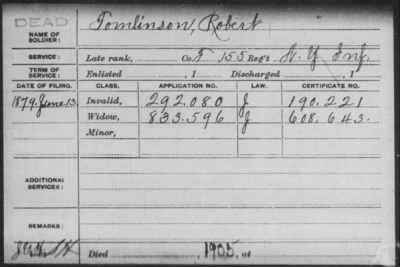 DEAD
NAME OF SOLDIER: Tomlinson, Robert
SERVICE: Late rank, Co. 155 Reg't N.Y. Inf.
TERM OF SERVICE: Enlisted , 1 Discharged , 1
DATE OF FILING. CLASS. APPLICATION NO. LAW. CERTIFICATE NO.
1879. June 13. Invalid, 292.080 J 190.221
Widow, 833.596 J 608.643.
Minor,
ADDITIONAL SERVICES:
REMARKS:
Died , 1905, at